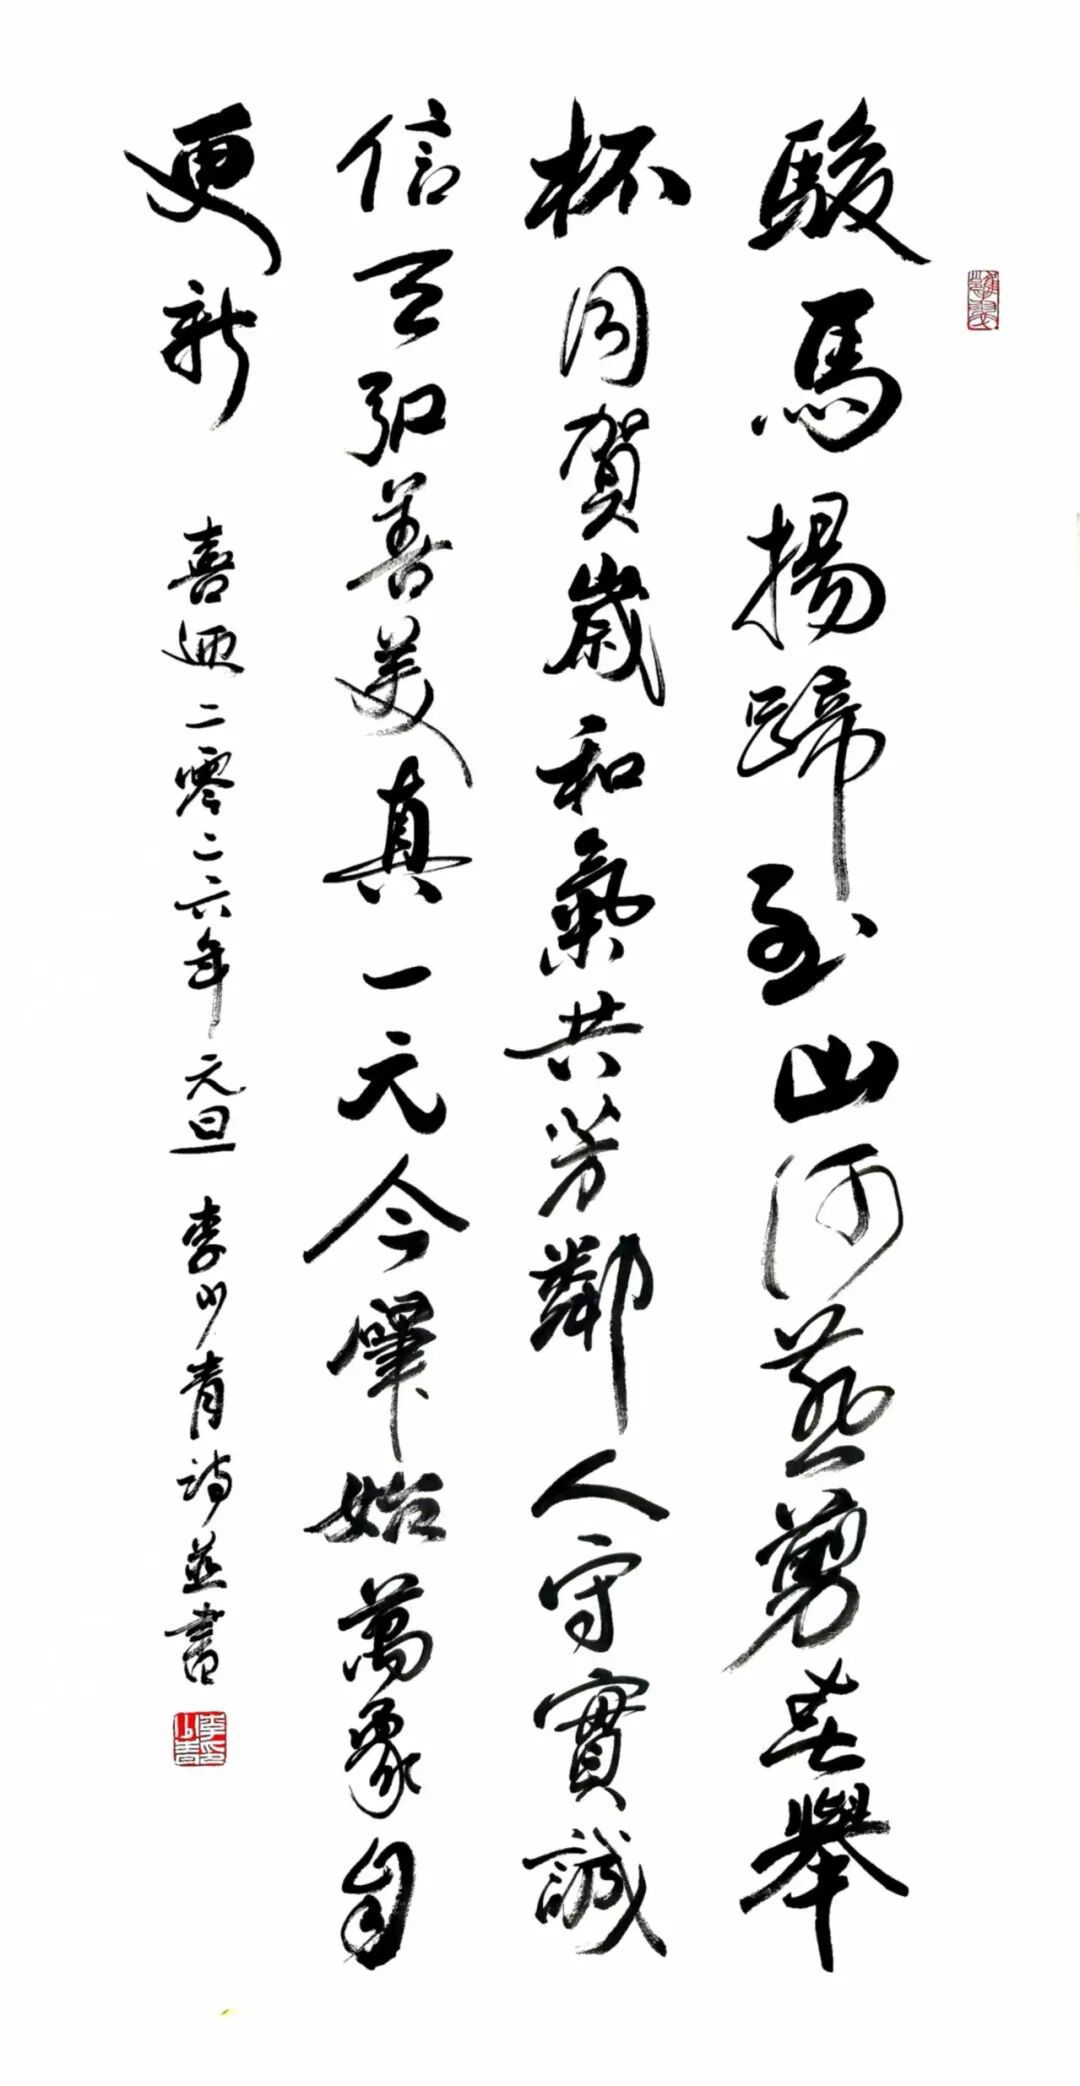 駿馬揚蹄至山河燕剪春舉
杯同賀歲和氣共芳鄰人守實誠
信天弘善美真一元今肇始萬象自
更新
喜迎二零二六年元旦 李少青詩並書